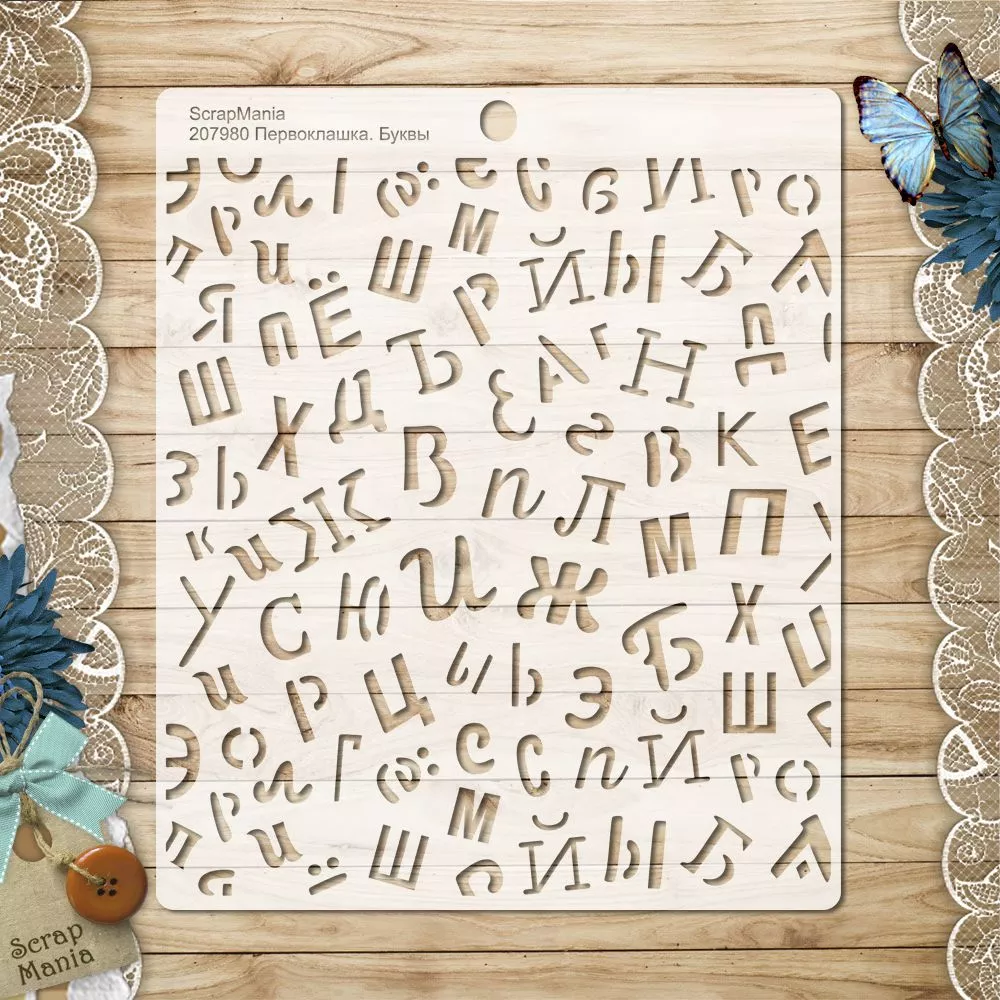 ScrapMania
207980 Первоклашка. Буквы
Э л с в И р о
р м
п и Ш Й Ы Ъ А
Я п Ё р Д
Ш Ъ А Н
Х Д з
З Ь В в К Е
п Л
к и Ж М П
У С Ю и ж Х
Б
и Р Ц ы Ь Э Ш
Э о л Г с с п Й р о
р м
п и Ш Й Ы Ъ А
Scrap
Mania